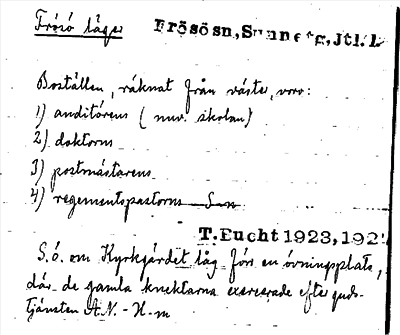 Frösö läger Frösö sn, Sunne tg, Jtl. l.
Boställen, räknat från väster, voro:
1) auditörens (nuv. skolan)
2) doktorns
3) postmästarens
4) regementspastorns
T. Eucht 1923, 192
S.ö. om Kyrkgärdet låg förr en övningsplats,
där de gamla knektarna exercerade efter guds-
tjänsten A.N.-H-m